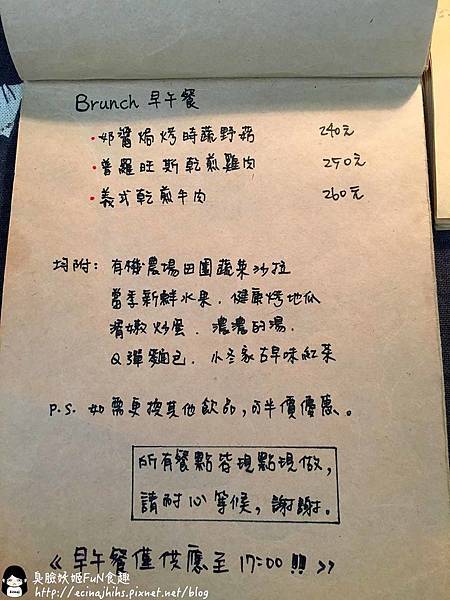 Brunch 早午餐
·奶醬焗烤時蔬野菇 240元
·普羅旺斯乾煎雞肉 250元
·義式乾煎牛肉 260元
均附：有機農場田園蔬菜沙拉
當季新鮮水果．健康烤地瓜
滑嫩炒蛋．濃濃的湯．
Q彈麵包．小冬家古早味紅茶
P.S. 如需更換其他飲品，可半價優惠。
所有餐點皆現點現做，
請耐心等候，謝謝。
《早午餐僅供應至 17:00 !!》
臭臉妖姬FuN食趣
http://ecinajhihs.pixnet.net/blog